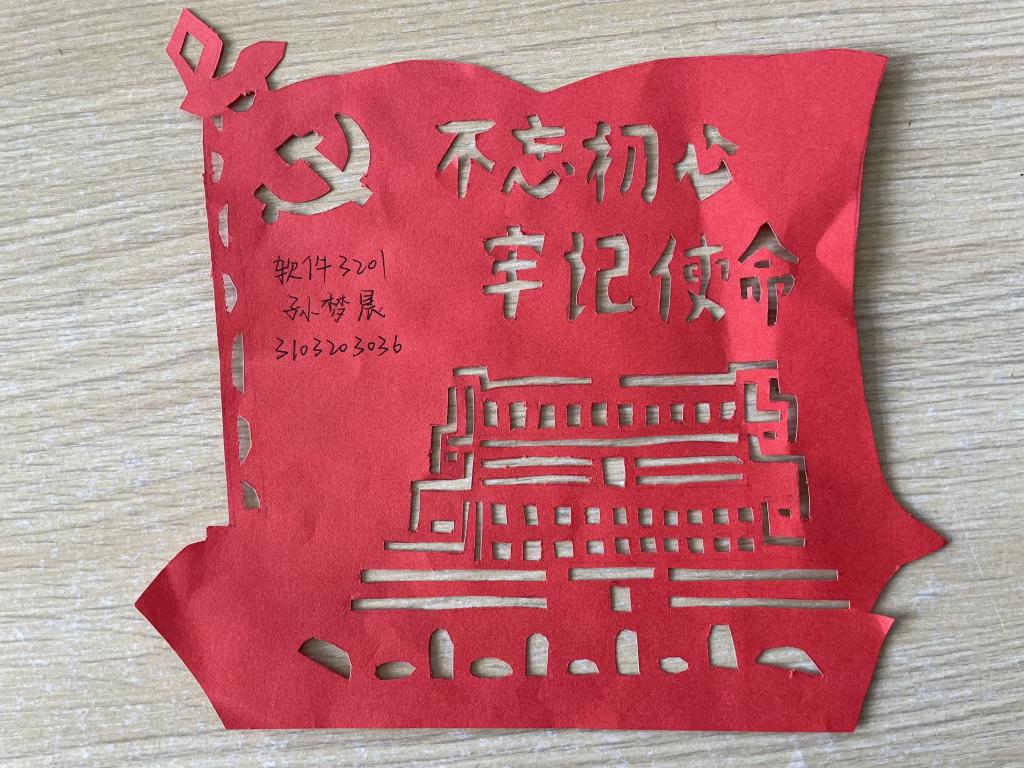 不忘初心
牢记使命
软件3201
孙梦晨
3103203036